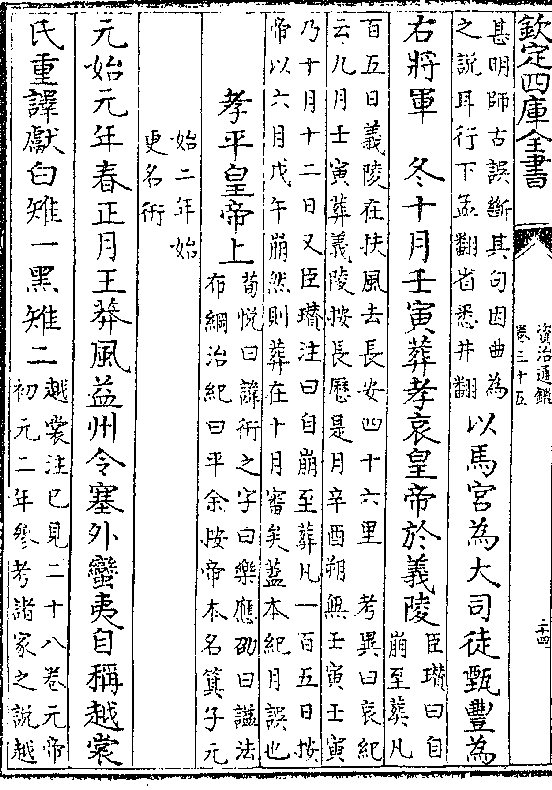 欽定四庫全書
資治通鑑
卷三十五
二十四
甚明師古誤斷其句因曲為
之說耳行下孟翻省悉井翻
以馬宮為大司徒甄豐為
右將軍　冬十月壬寅葬孝哀皇帝於義陵
臣瓚曰自
崩至葬凡
百五日義陵在扶風去長安四十六里　考異曰哀紀
云九月壬寅葬義陵按長歷是月辛酉朔無壬寅壬寅
乃十月十二日又臣瓚注曰自崩至葬凡一百五日按
帝以六月戊午崩然則葬在十月審矣蓋本紀月誤也
孝平皇帝上
荀悅曰諱衎之字曰樂應劭曰諡法
布綱治紀曰平余按帝本名箕子元
始二年始
更名衎
元始元年春正月王莽風益州令塞外蠻夷自稱越裳
氏重譯獻白雉一黑雉二
越裳注已見二十八卷元帝
初元二年參考諸家之說越